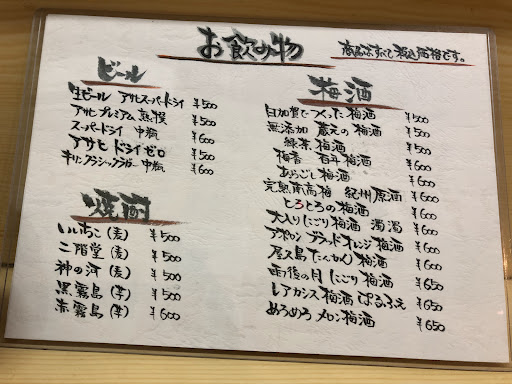 お飲み物
商品はすべて税込価格です。
ビール
生ビール アサヒスーパードライ ¥500
アサヒ プレミアム 熟撰 ¥500
スーパードライ 中瓶 ¥600
アサヒ ドライゼロ ¥500
キリンクラシックラガー 中瓶 ¥600
焼酎
いいちこ (麦) ¥500
二階堂 (麦) ¥500
神の河 (麦) ¥500
黒霧島 (芋) ¥500
赤霧島 (芋) ¥600
梅酒
白加賀でつくった梅酒 ¥500
無添加 蔵元の梅酒 ¥500
緑茶梅酒 ¥500
梅香 百年梅酒 ¥600
あらごし梅酒 ¥600
完熟南高梅 紀州原酒 ¥600
とろとろの梅酒 ¥600
大入りにごり梅酒 濁濁 ¥600
アポロン ブラッドオレンジ梅酒 ¥600
屋久島たんかん梅酒 ¥600
雨後の月 にごり梅酒 ¥650
レアカシス梅酒 ぱるふぇ ¥650
めろめろ メロン梅酒 ¥650